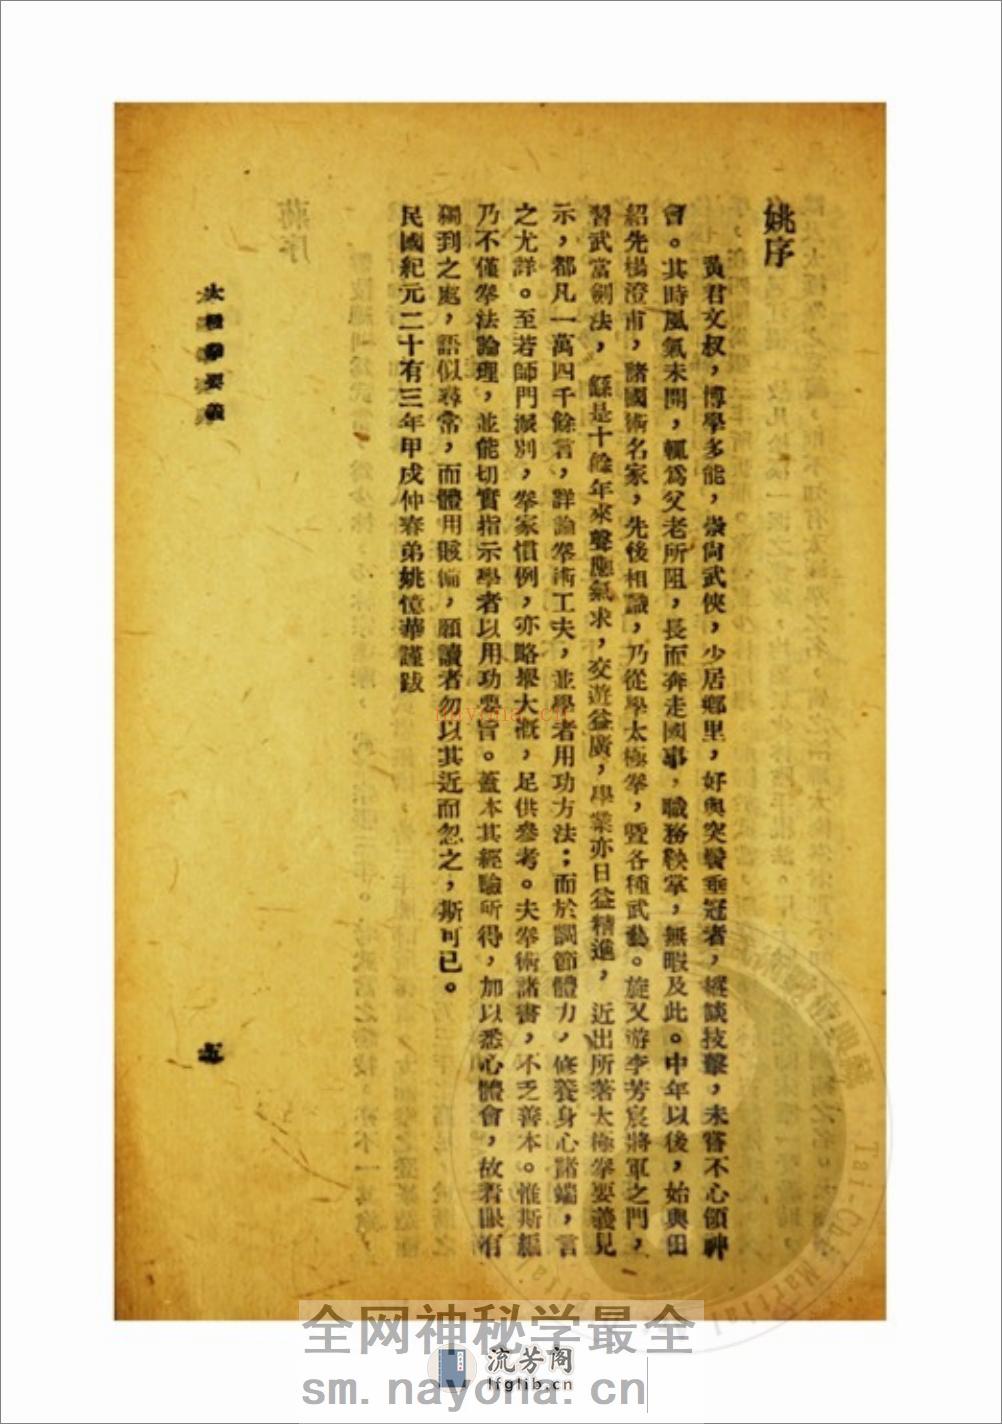 姚序
黃君文叔，博學多能，崇尙武俠，少居鄉里，好與突鬢垂冠者，縱談技擊，未嘗不心領神
會。其時風氣未開，輒爲父老所阻，長而奔走國事，職務鞅掌，無暇及此。中年以後，始與田
紹先楊澄甫，諸國術名家，先後相識，乃從學太極拳，暨各種武藝。旋又游李芳宸將軍之門，
習武當劍法，繇是十餘年來聲應氣求，交遊益廣，學業亦日益精進，近出所著太極拳要義見
示，都凡一萬四千餘言，詳論拳術工夫，並學者用功方法；而於調節體力，修養身心諸端，言
之尤詳。至若師門派別，拳家慣例，亦略舉大槪，足供參考。夫拳術諸書，不乏善本。惟斯編
乃不僅拳法論理，並能切實指示學者以用功要旨。蓋本其經驗所得，加以悉心體會，故着眼有
獨到之處，語似尋常，而體用賅備，願讀者勿以其近而忽之，斯可已。
民國紀元二十有三年甲戌仲春弟姚憶華謹跋
太極拳要義
五
蔣序
nayona.cn
全网神秘学最全
流芳阁
lfglib.cn
sm.nayona.cn